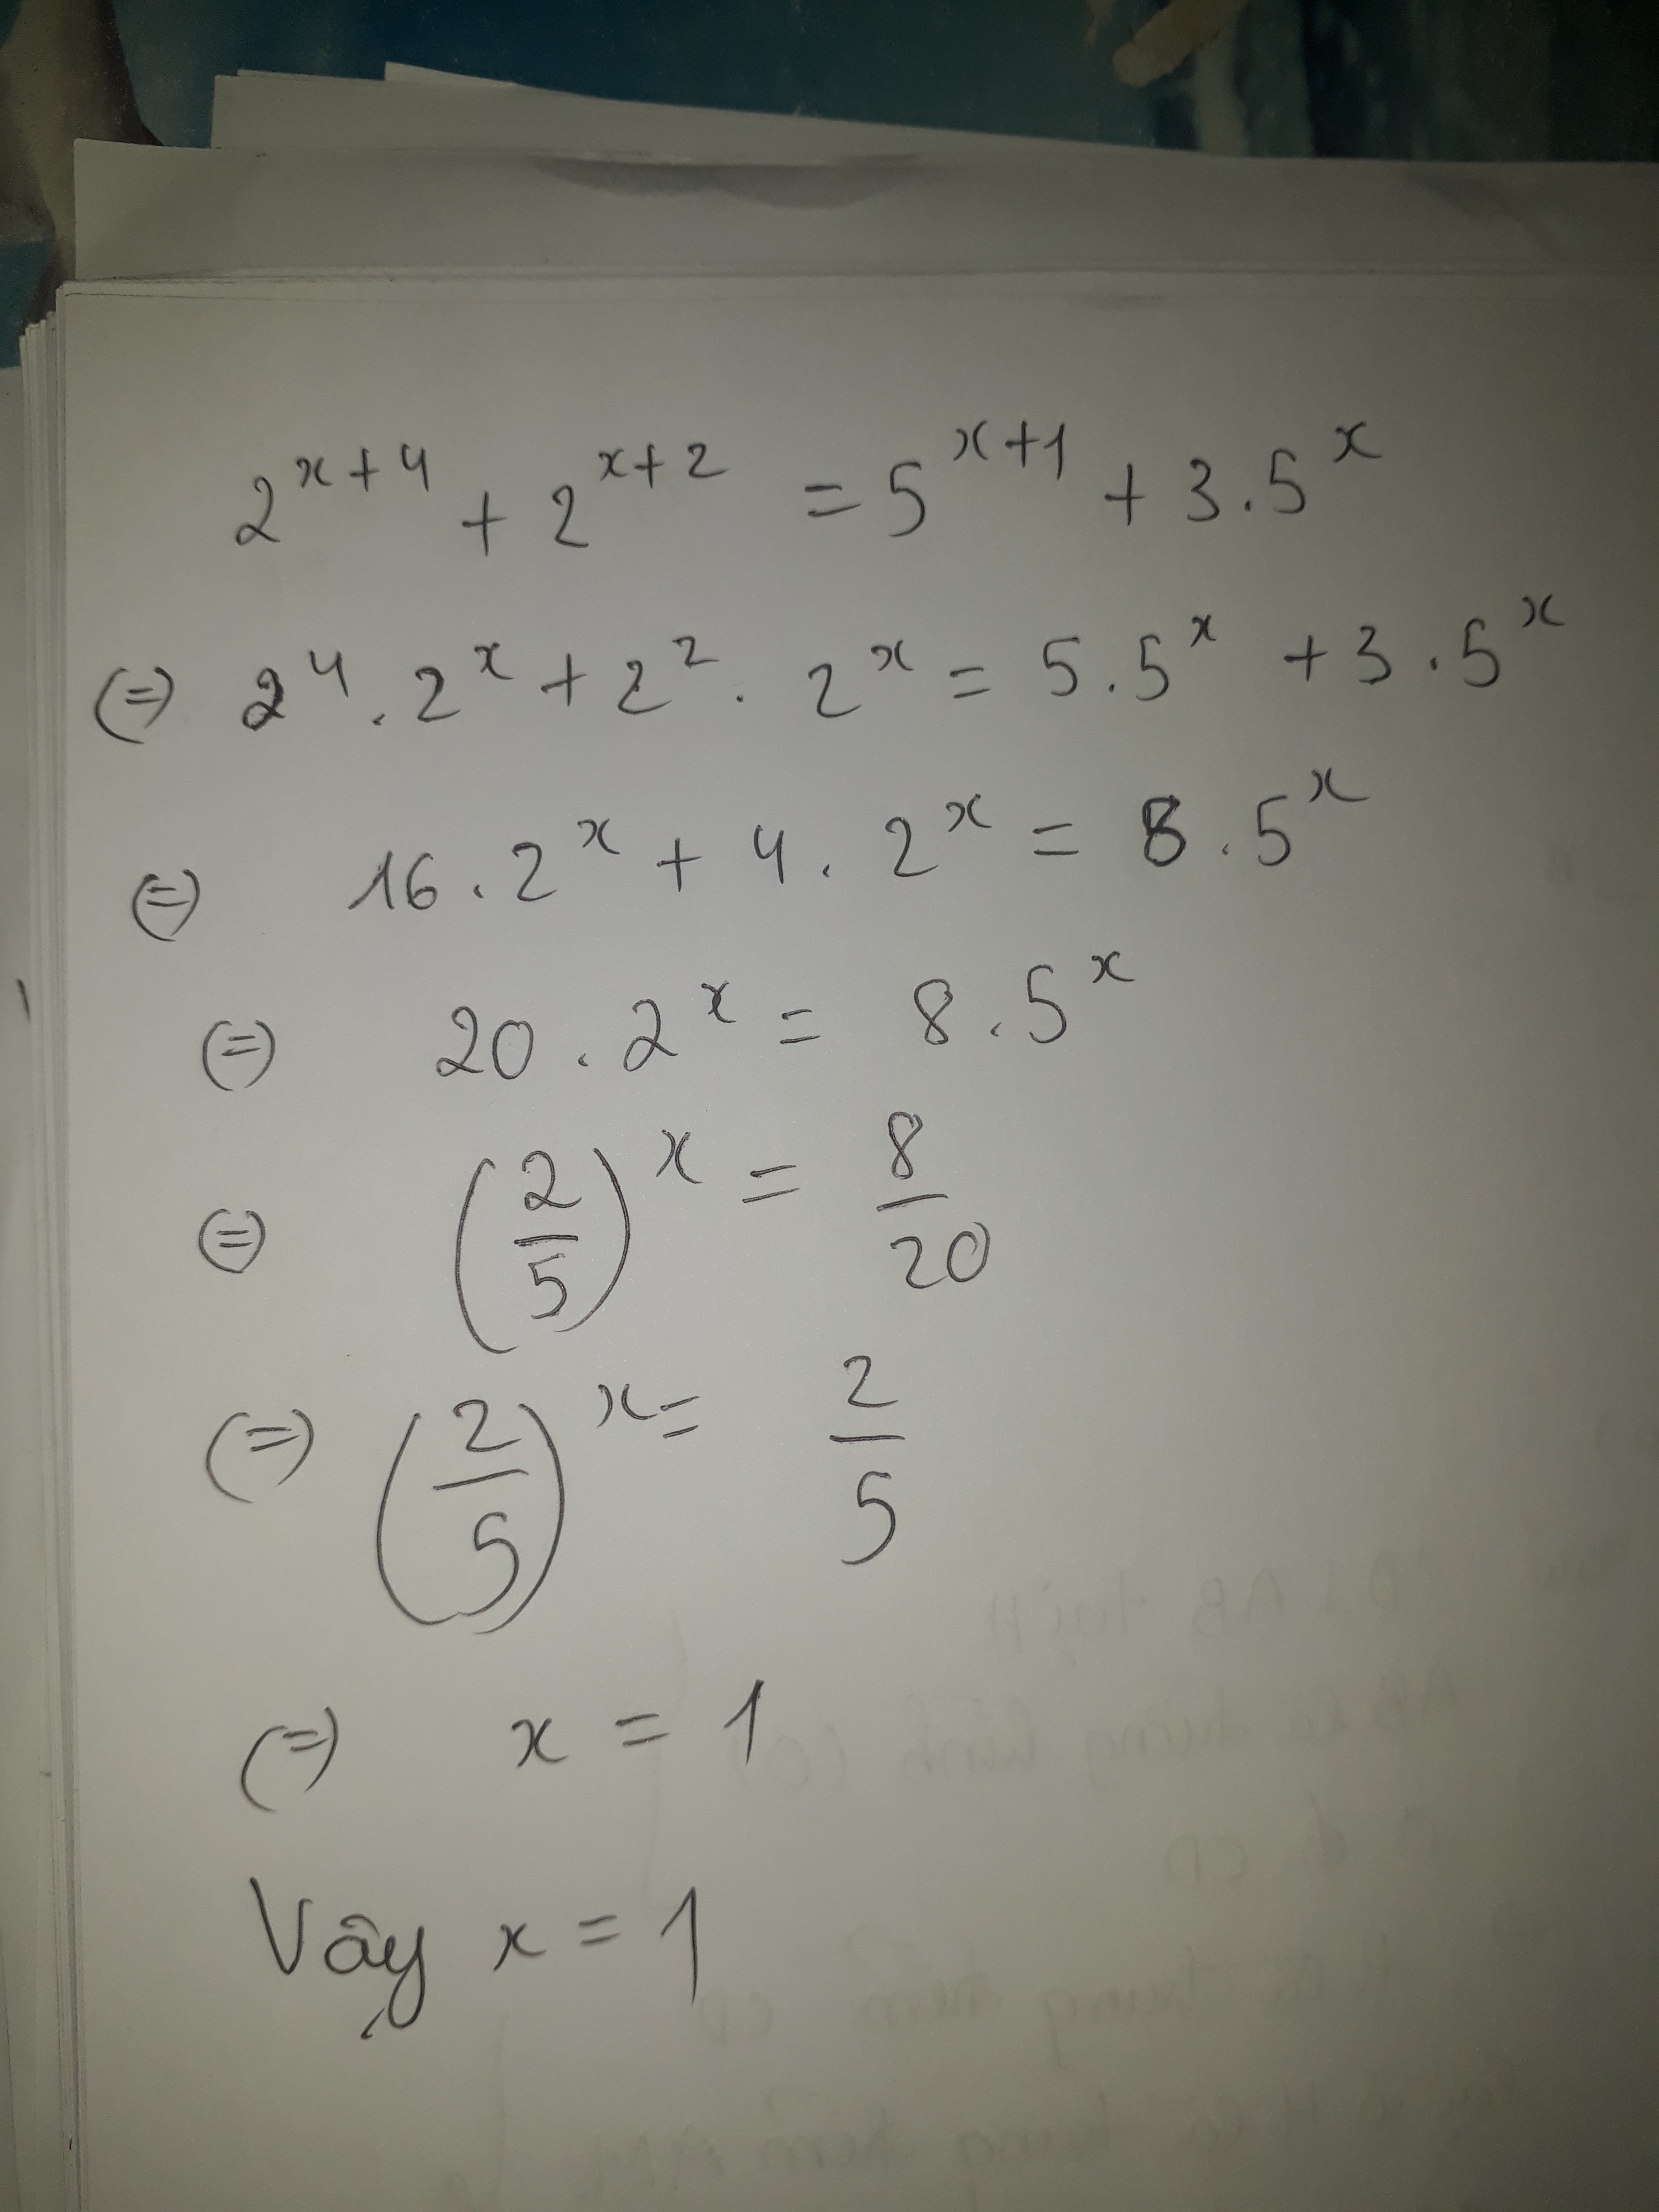 2^{x+4} + 2^{x+2} = 5^{x+1} + 3.5^x
(=) 2^4 . 2^x + 2^2 . 2^x = 5.5^x + 3.5^x
(=) 16 . 2^x + 4 . 2^x = 8 . 5^x
(=) 20 . 2^x = 8 . 5^x
(=) (2/5)^x = 8/20
(=) (2/5)^x = 2/5
(=) x = 1
Vậy x = 1